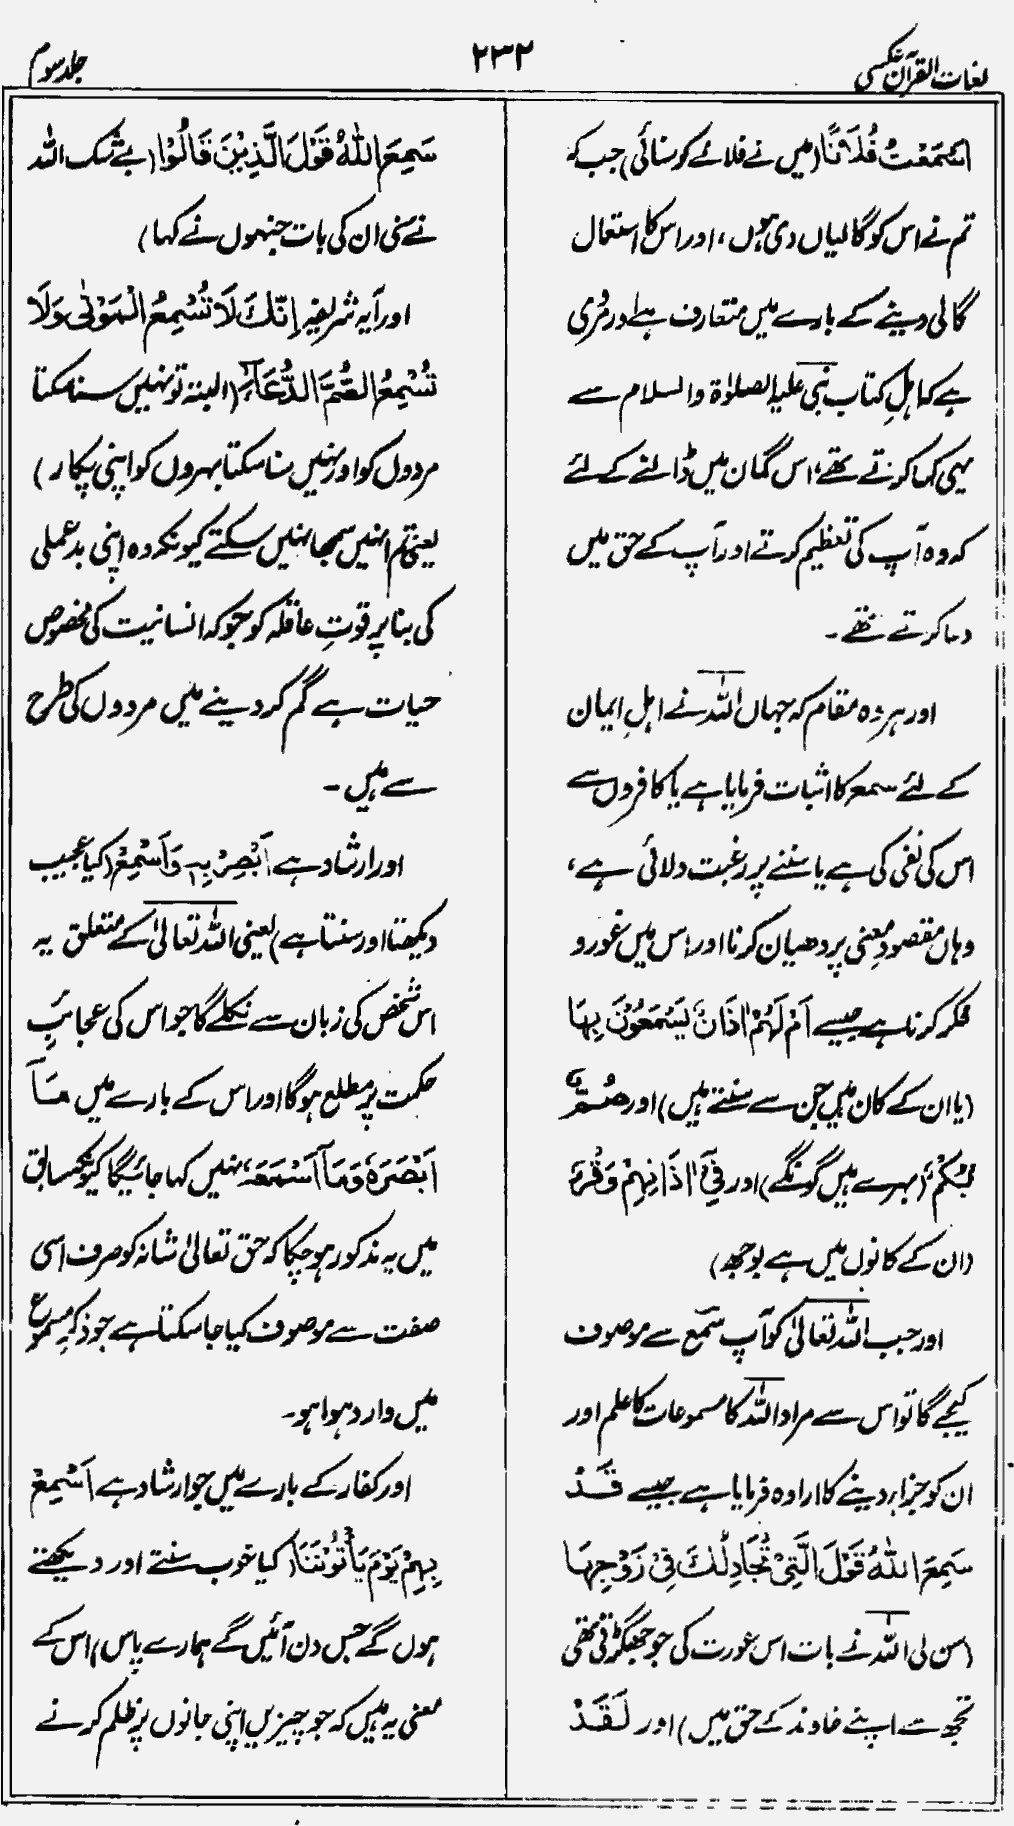 لغات القرآن عکسی
۲۳۲
جلد سوم
اَسْمَعْتُ فُلَانًا (میں نے فلانے کو سنائی) جب کہ
تم نے اس کو گالیاں دی ہوں، اور اس کا استعمال
گالی دینے کے بارے میں متعارف ہے اور مروی
ہے کہ اہلِ کتاب نبی علیہ الصلوٰۃ والسلام سے
یہی کہا کرتے تھے، اس گمان میں ڈالنے کے لئے
کہ وہ آپ کی تعظیم کرتے اور آپ کے حق میں
دعا کرتے تھے۔
اور ہر وہ مقام کہ جہاں اللہ نے اہلِ ایمان
کے لئے سمع کا اثبات فرمایا ہے یا کافروں سے
اس کی نفی کی ہے یا سننے پر رغبت دلائی ہے،
وہاں مقصود معنی پر دھیان کرنا اور اس میں غور و
فکر کرنا ہے جیسے اَمْ لَهُمْ اٰذَانٌ يَسْمَعُوْنَ بِهَا
(یا ان کے کان ہیں جن سے سنتے ہیں) اور صُمٌّۢ
بُكْمٌ (بہرے ہیں گونگے) اور فِیْۤ اٰذَانِهِمْ وَقْرٌ
(ان کے کانوں میں ہے بوجھ)
اور جب اللہ تعالیٰ کو آپ سَمْع سے موصوف
کیجے گا تو اس سے مراد اللہ کا مسموعات کا علم اور
ان کو جزا دینے کا ارادہ فرمایا ہے جیسے قَدْ
سَمِعَ اللّٰهُ قَوْلَ الَّتِیْ تُجَادِلُكَ فِیْ زَوْجِهَا
(سن لی اللہ نے بات اس عورت کی جو جھگڑتی تھی
تجھ سے اپنے خاوند کے حق میں) اور لَقَدْ
سَمِعَ اللّٰهُ قَوْلَ الَّذِيْنَ قَالُوْا (بے شک اللہ
نے سنی ان کی بات جنہوں نے کہا)
اور آیہ شریفہ اِنَّكَ لَا تُسْمِعُ الْمَوْتٰی وَلَا
تُسْمِعُ الصُّمَّ الدُّعَآءَ (البتہ تو نہیں سنا سکتا
مردوں کو اور نہیں سنا سکتا بہروں کو اپنی پکار)
یعنی تم انہیں سمجھا نہیں سکتے کیونکہ وہ اپنی بدعملی
کی بنا پر قوتِ عاقلہ کو جو کہ انسانیت کی مخصوص
حیات ہے گم کر دینے میں مردوں کی طرح
سے ہیں۔
اور ارشاد ہے اَبْصِرْ بِهٖ وَاَسْمِعْ (کیا عجیب
دیکھتا اور سنتا ہے) یعنی اللہ تعالیٰ کے متعلق یہ
اس شخص کی زبان سے نکلے گا جو اس کی عجائبِ
حکمت پر مطلع ہوگا اور اس کے بارے میں مَآ
اَبْصَرَهٗ وَمَآ اَسْمَعَهٗ نہیں کہا جائیگا کیونکہ سابق
میں یہ مذکور ہو چکا کہ حق تعالیٰ شانہ کو صرف اسی
صفت سے موصوف کیا جا سکتا ہے جو ذکرِ مسموع
میں وارد ہوا ہو۔
اور کفار کے بارے میں جو ارشاد ہے اَسْمِعْ
بِهِمْ يَوْمَ يَأْتُوْنَنَا (کیا خوب سنتے اور دیکھتے
ہوں گے جس دن آئیں گے ہمارے پاس) اس کے
معنی یہ ہیں کہ جو چیزیں اپنی جانوں پر ظلم کرنے